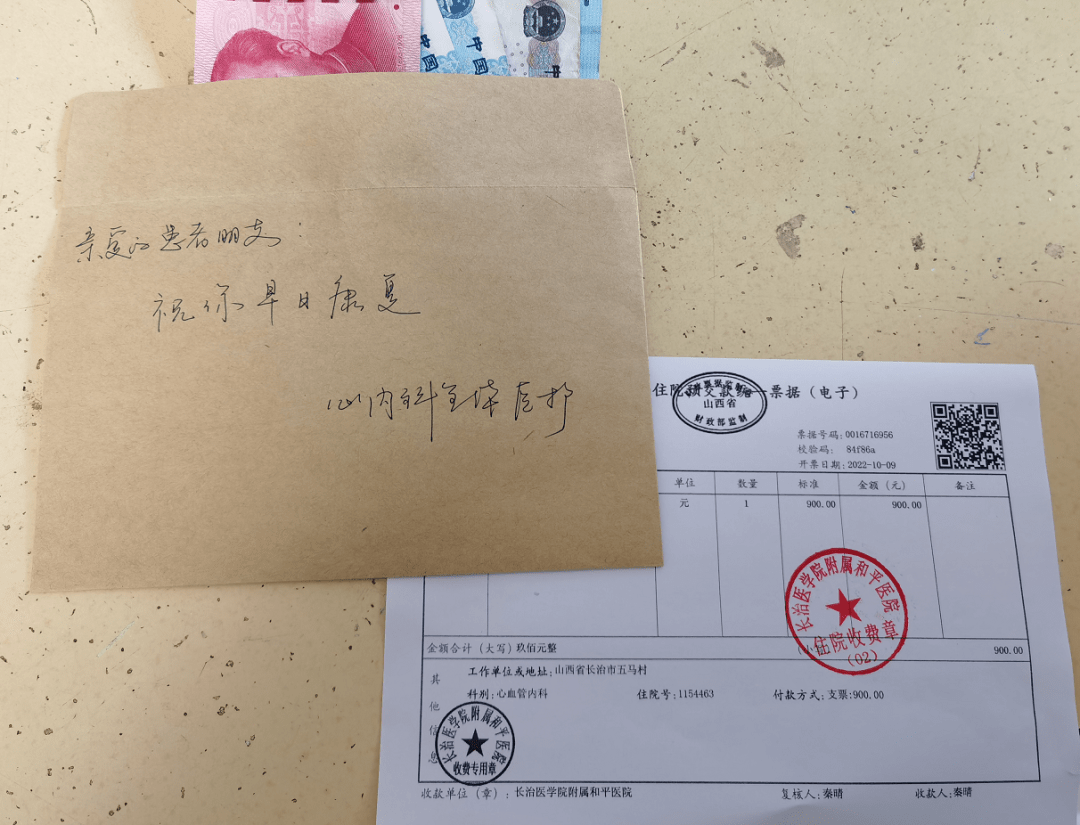 中国
中国
中
亲爱的患者朋友：
祝你早日康复
心内科全体医护
住院预交款统一票据（电子）
山西省
财政部监制
票据号码：0016716956
校验码：84f86a
开票日期：2022-10-09
单位 数量 标准 金额（元） 备注
元 1 900.00 900.00
长治医学院附属和平医院
住院收费章
(02)
金额合计（大写）玖佰元整 900.00
其他信息
工作单位或地址：山西省长治市五马村
科别：心血管内科 住院号：1154463 付款方式：支票:900.00
长治医学院附属和平医院
收费专用章
收款单位（章）：长治医学院附属和平医院 复核人：秦晴 收款人：秦晴